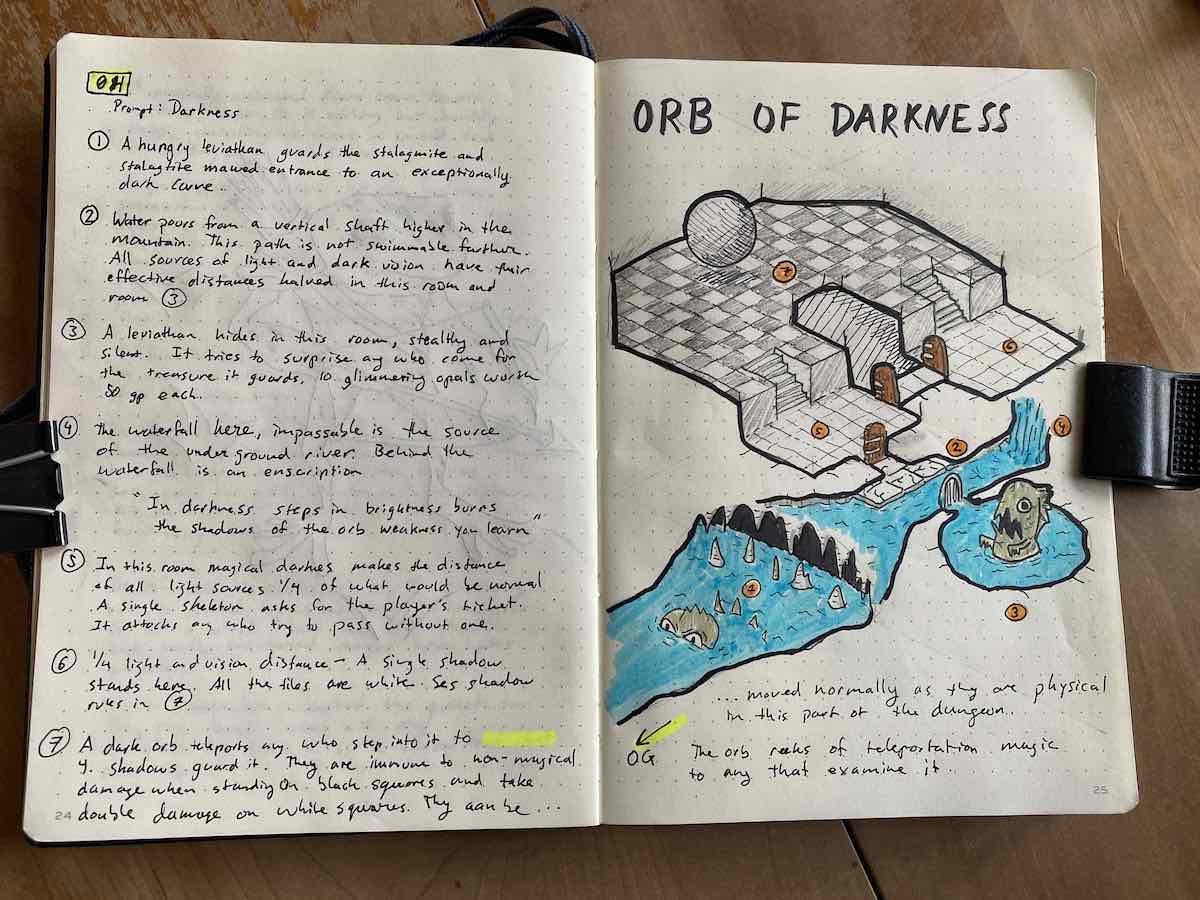 OH
Prompt: Darkness
① A hungry leviathan guards the stalagmite and
stalagtite mawed entrance to an exceptionally
dark cave..
② Water pours from a vertical shaft higher in the
mountain. This path is not swimmable further.
All sources of light and dark vision have their
effective distances halved in this room and
room ③
③ A leviathan hides in this room, stealthy and
silent. It tries to surprise any who come for
the treasure it guards. 10 glimmering opals worth
50 gp each.
④ the waterfall here, impassable is the source
of the underground river. Behind the
waterfall is an enscription
"In darkness steps in brightness burns
the shadows of the orb weakness you learn"
⑤ In this room magical darknes makes the distance
of all light sources 1/4 of what would be normal
A single skeleton asks for the player's ticket.
It attacks any who try to pass without one.
⑥ 1/4 light and vision distance - A single shadow
stands here. All the tiles are white. See shadow
rules in ⑦
⑦ A dark orb teleports any who step into it to
4 shadows guard it. They are immune to non-magical
damage when standing on black squares and take
double damage on white squares. They can be ...
24
ORB OF DARKNESS
7
6
5
2
4
1
3
... moved normally as they are physical
in this part of the dungeon.
OG
The orb reeks of teleportation magic
to any that examine it.
25